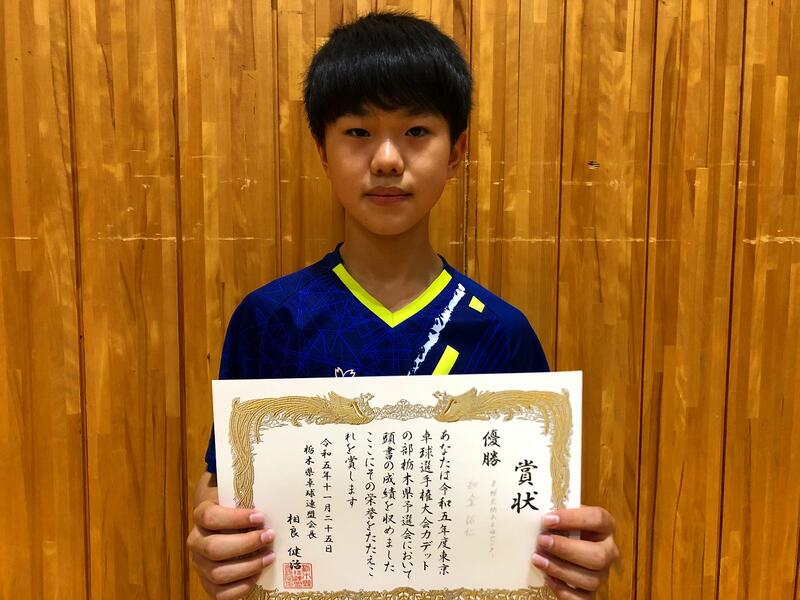 賞状
優勝
あなたは令和五年度東京
卓球選手権大会カデット
の部栃木県予選会において
頭書の成績を収めました
ここにその栄誉をたたえこ
れを賞します
令和五年十一月二十五日
栃木県卓球連盟会長
相良健治